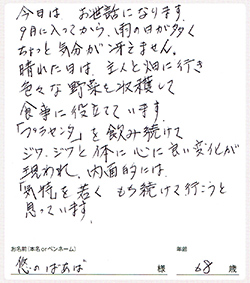 今日は お世話になります.
9月に入ってから、雨の日が多く
ちょっと気分が冴えません。
晴れた日は、主人と畑に行き
色々な野菜を収穫して
食事に役立てています.
「プラセンタ」を飲み続けて
ジワ、ジワと体に心に良い変化が
現われ、内面的には、
「気持を若く もち続けて行こうと
思っています.
お名前(本名orペンネーム)
年齢
悠のばあば 様 68歳